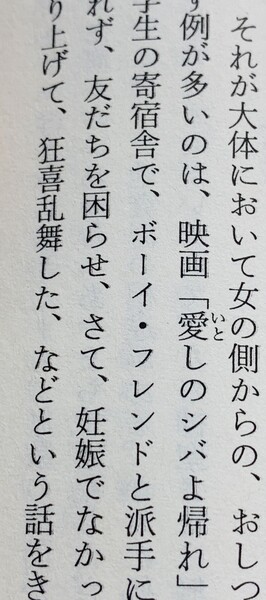 それが大体において女の側からの、おしつ
す例が多いのは、映画「愛しのシバよ帰れ」
いと
学生の寄宿舎で、ボーイ・フレンドと派手に
れず、友だちを困らせ、さて、妊娠でなかっ
り上げて、狂喜乱舞した、などという話をき